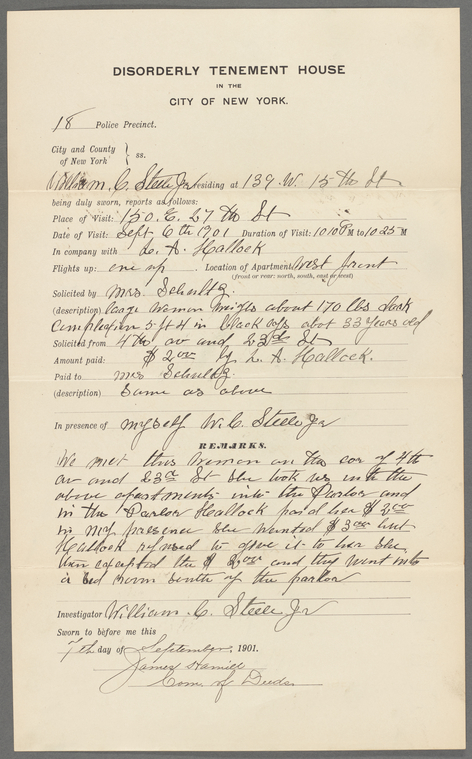 DISORDERLY TENEMENT HOUSE
IN THE
CITY OF NEW YORK.
18 Police Precinct.
City and County
of New York } ss.
William C. Steele Jr residing at 139. W. 15th St
being duly sworn, reports as follows:
Place of Visit: 150. E. 27th St
Date of Visit: Sept 6th 1901 Duration of Visit: 10 10 P M to 10 25 M
In company with L. A. Hallock
Flights up: one up. Location of Apartment West front
(front or rear: north, south, east or west)
Solicited by Mrs. Schultz.
(description) large woman weighs about 170 lbs dark
complection 5 ft 4 in black eyes abot 33 years old
Solicited from 4th av and 23rd St
Amount paid: $2.00 by L. A. Hallock.
Paid to Mrs Schultz.
(description) same as above
In presence of myself W. C. Steele Jr
REMARKS.
We met this woman on the cor of 4th
av and 23rd St she took us into the
above apartments into the Parlor and
in the Parlor Hallock paid her $2.00
in my presence she wanted $3.00 but
Hallock refused to give it to her she
then excepted the $2.00 and they went into
a bed room south of the parlor
Investigator William. C. Steele Jr
Sworn to before me this
7th day of September, 1901.
James Hamill
Com. of Deeds